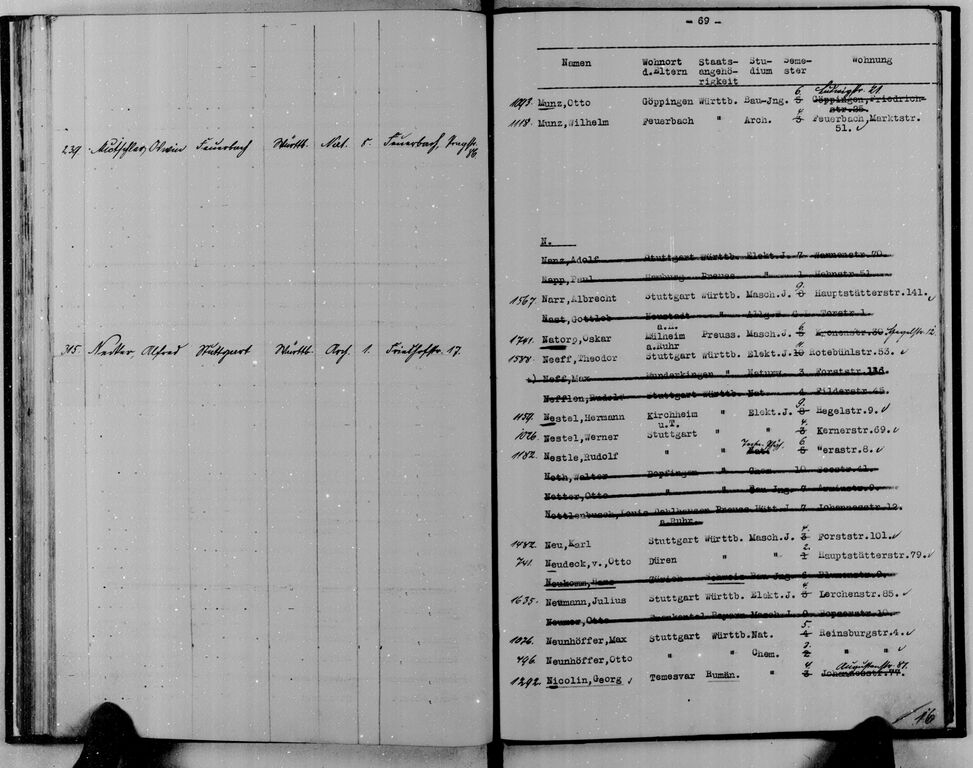 239. Mutschler, Erwin Feuerbach Württ. Nat. 5. Feuerbach,
86.
315. Nestler, Alfred Stuttgart Württ. Arch. 1. Friedhofstr. 17.
- 69 -
Namen Wohnort d.Eltern Staats-angehö-rigkeit Stu-dium Seme-ster Wohnung
6. Ludwigstr. 21.
1093. Munz,Otto Göppingen Württb. Bau-Jng. 5 Göppingen,Friedrich-
str.25.
4.
1118. Munz,Wilhelm Feuerbach " Arch. 3 Feuerbach,Marktstr.
51. √
N.
Nanz,Adolf Stuttgart Württb. Elekt.J. 7
Napp,Paul Homburg Preuss. " 1 Hahnstr.51.
9.
1567. Narr,Albrecht Stuttgart Württb. Masch.J. 8 Hauptstätterstr.141. √
Nast,Gottlob Neustadt " Forstr.1
a.H.
6
1741. Natorp,Oskar Mülheim Preuss. Masch.J. 5 Kronenstr.30 12
a.Ruhr
1588. Neeff,Theodor Stuttgart Württb. Elekt.J. 10 Rotebühlstr.53. √
Neff,Max Munderkingen " Naturw. 3 Forststr.
Nefflen,Rudolf Stuttgart Württb. Nat. 4 Filderstr.45.
9.
1159. Nestel,Hermann Kirchheim " Elekt.J. 8 Hegelstr.9. √
u.T.
4.
1026. Nestel,Werner Stuttgart " " 3 Kernerstr.69. √
6
1182. Nestle,Rudolf " " 5 Werastr.8. √
Neth,Walter Bopfingen " Chem. 10 Seestr.41.
Netter,Otto " " Bau-Jng. 7 Arminstr.9.
Nettlenbusch,Louis Dahlhausen Preuss. Hütt.J. 7 Johannesstr.12.
a.Ruhr.
4.
1482. Neu,Karl Stuttgart Württb. Masch.J. 3 Forststr.101. √
2.
741. Neudeck,v.,Otto Düren " " 1 Hauptstätterstr.79. √
Neukomm,Hans Zürich Schweiz Bau-Jng. 8 Blumenstr.9.
1635. Neumann,Julius Stuttgart Württb. Elekt.J. Lerchenstr.85. √
Neumer,Otto Frankental Bayern Masch.J. 9 Hopserstr.10.
5.
1076. Neunhöffer,Max Stuttgart Württb. Nat. 4 Reinsburgstr.4. √
3.
796. Neunhöffer,Otto " " Chem. 2 " " √
4. Augustenstr. 81.
1292. Nicolin,Georg √ Temesvar Rumän. " 3 Johannesstr.77.
16